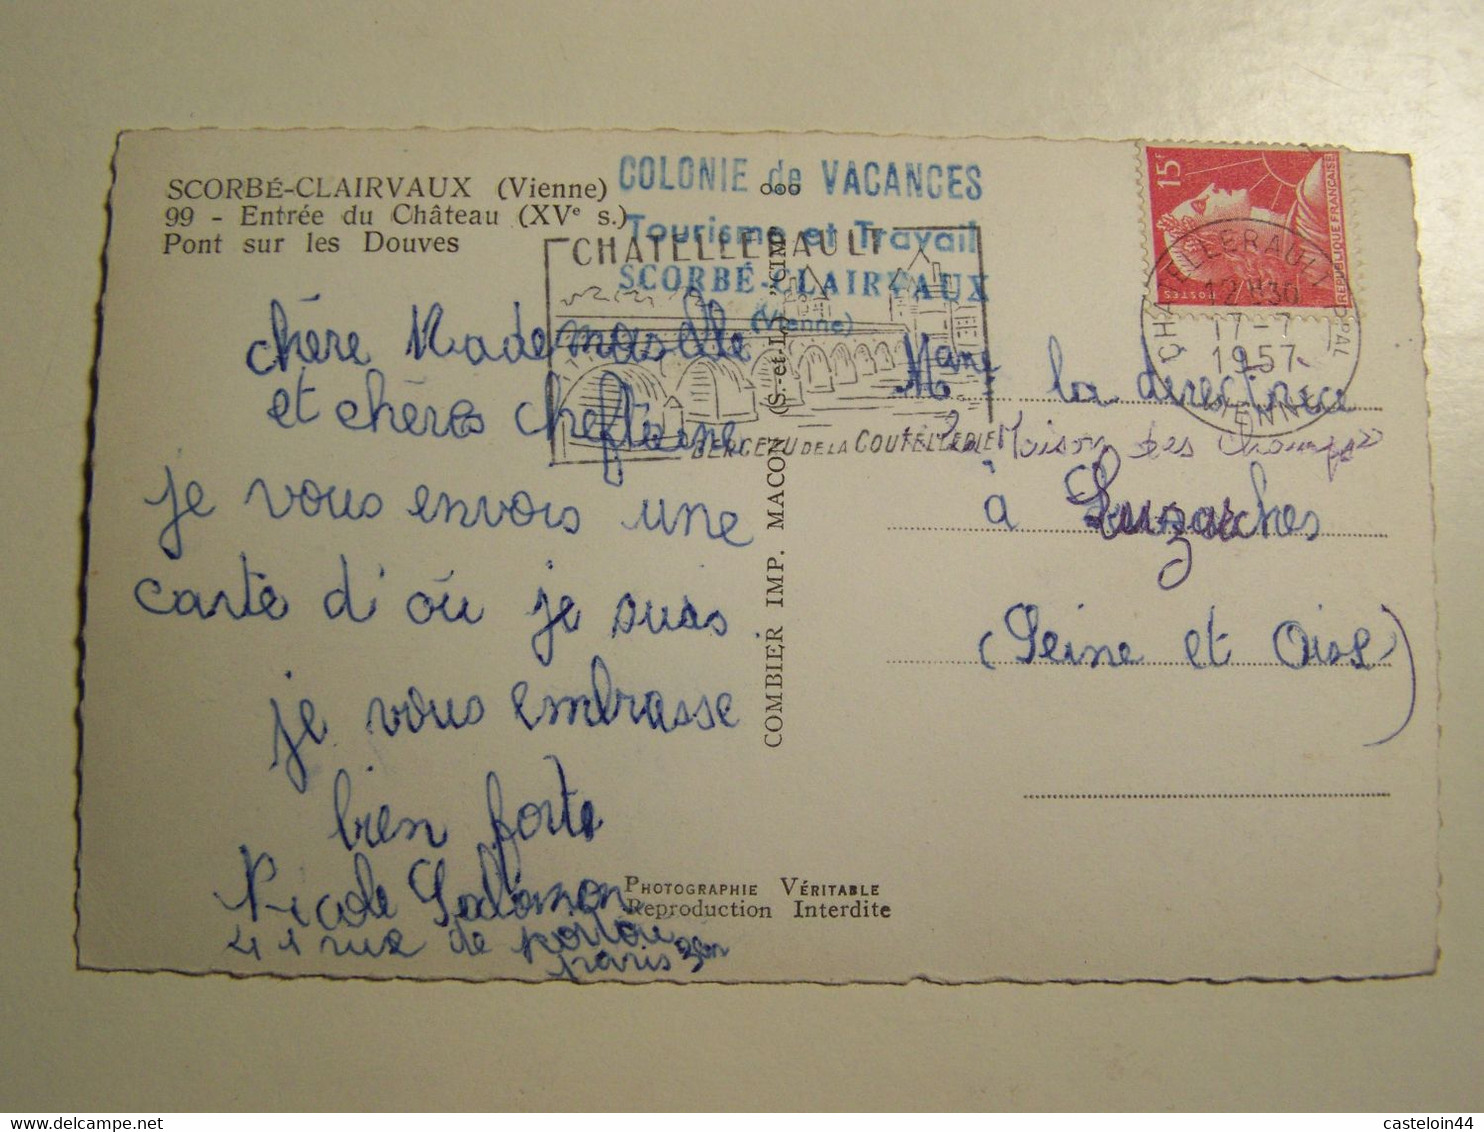 SCORBÉ-CLAIRVAUX (Vienne)
99 - Entrée du Château (XVe s.)
Pont sur les Douves
COLONIE de VACANCES
Tourisme et Travail
SCORBÉ-CLAIRVAUX
(Vienne)
CHATELLERAULT
BERCEAU DE LA COUTELLERIE
15F
REPUBLIQUE FRANÇAISE
POSTES
CHATELLERAULT PAL
12H30
17-7
1957
VIENNE
chère Mademoiselle
et chères cheftaine
je vous envois une
carte d'où je suis
je vous embrasse
bien forte
Nicole Salomon
41 rue de Poitou
Paris 3em
COMBIER IMP. MACON (S.-et-L.) "CIM"
Mame la directrice
"La Maison des Champs"
à Luzarches
(Seine et Oise)
PHOTOGRAPHIE VÉRITABLE
Reproduction Interdite
www.delcampe.net
casteloin44